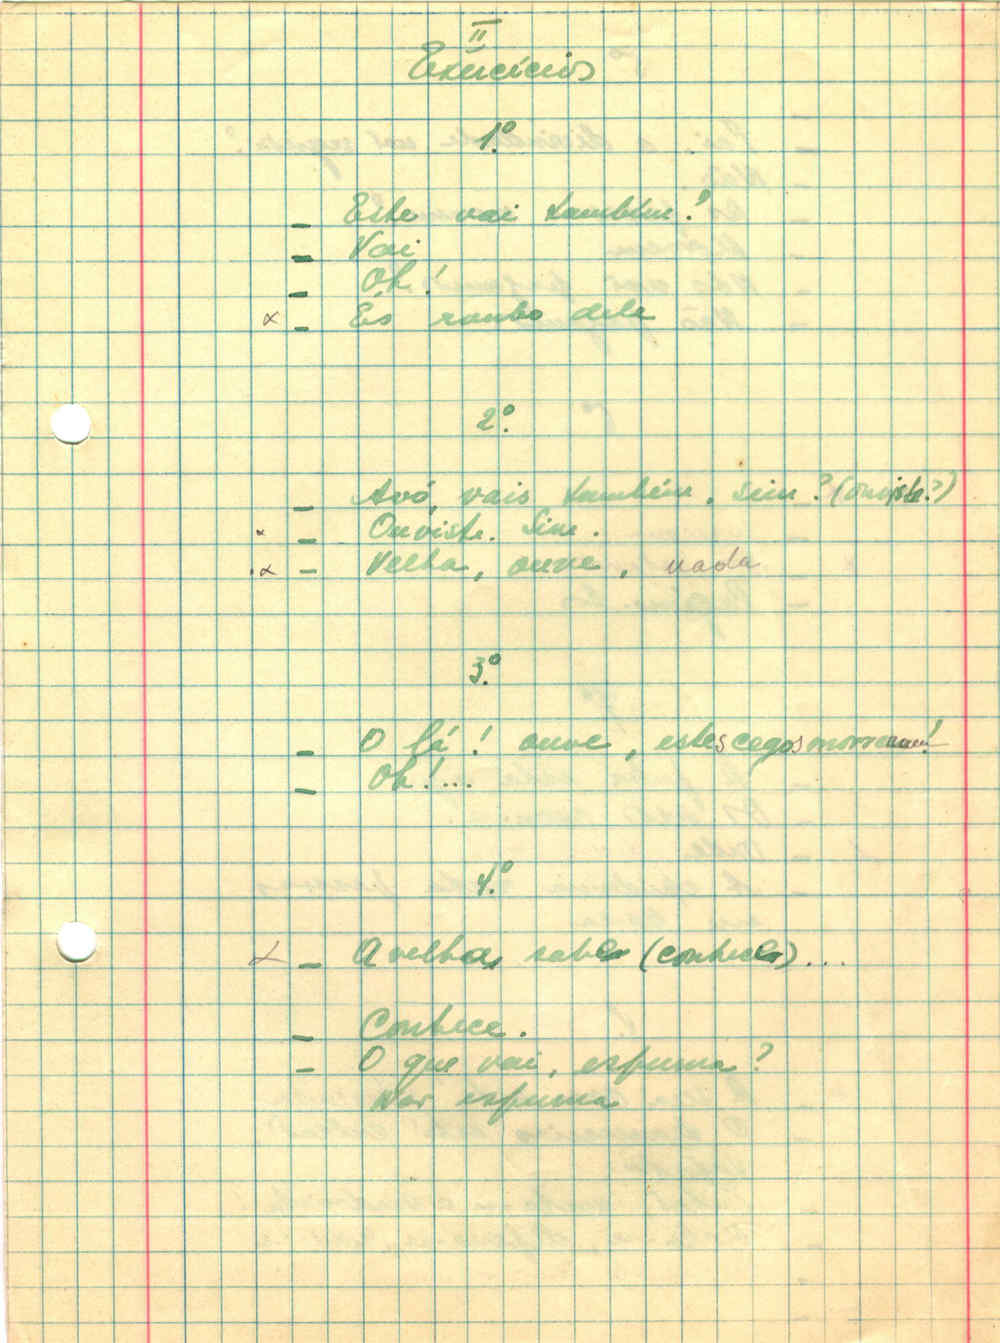 II
Exercícios
1º
– Este vai também?
– Vai
– Oh!
x – És roubo dele
2º
– Avó, vais também, sim? (ouviste?)
x – Ouviste. Sim.
x – Velha, ouve, nada
3º
– O lá! ouve, estes cegos morreram!
– Oh!...
4º
x – A velha, sabe (conhece)...
– Conhece.
– O que vai, espuma?
espuma